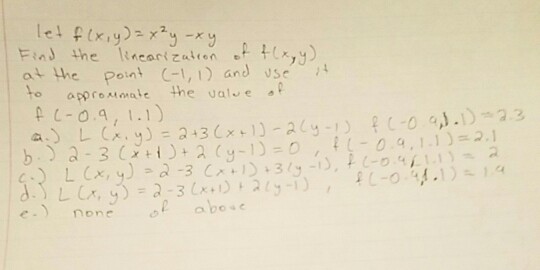 let f(x,y) = x²y - xy
Find the linearization of f(x,y)
at the point (-1, 1) and use it
to approxmate the value of
f (-0.9, 1.1)
a.) L (x, y) = 2+3(x+1) - 2(y-1) f(-0.9,1.1) = 2.3
b.) 2 - 3 (x+1) + 2 (y-1) = 0, f(-0.9, 1.1) = 2.1
c.) L (x, y) = 2 - 3 (x+1) + 3(y-1), f(-0.9,1.1) = 2
d.) L (x, y) = 2 - 3(x+1) + 2(y-1), f(-0.9,1.1) = 1.9
e.) none of above